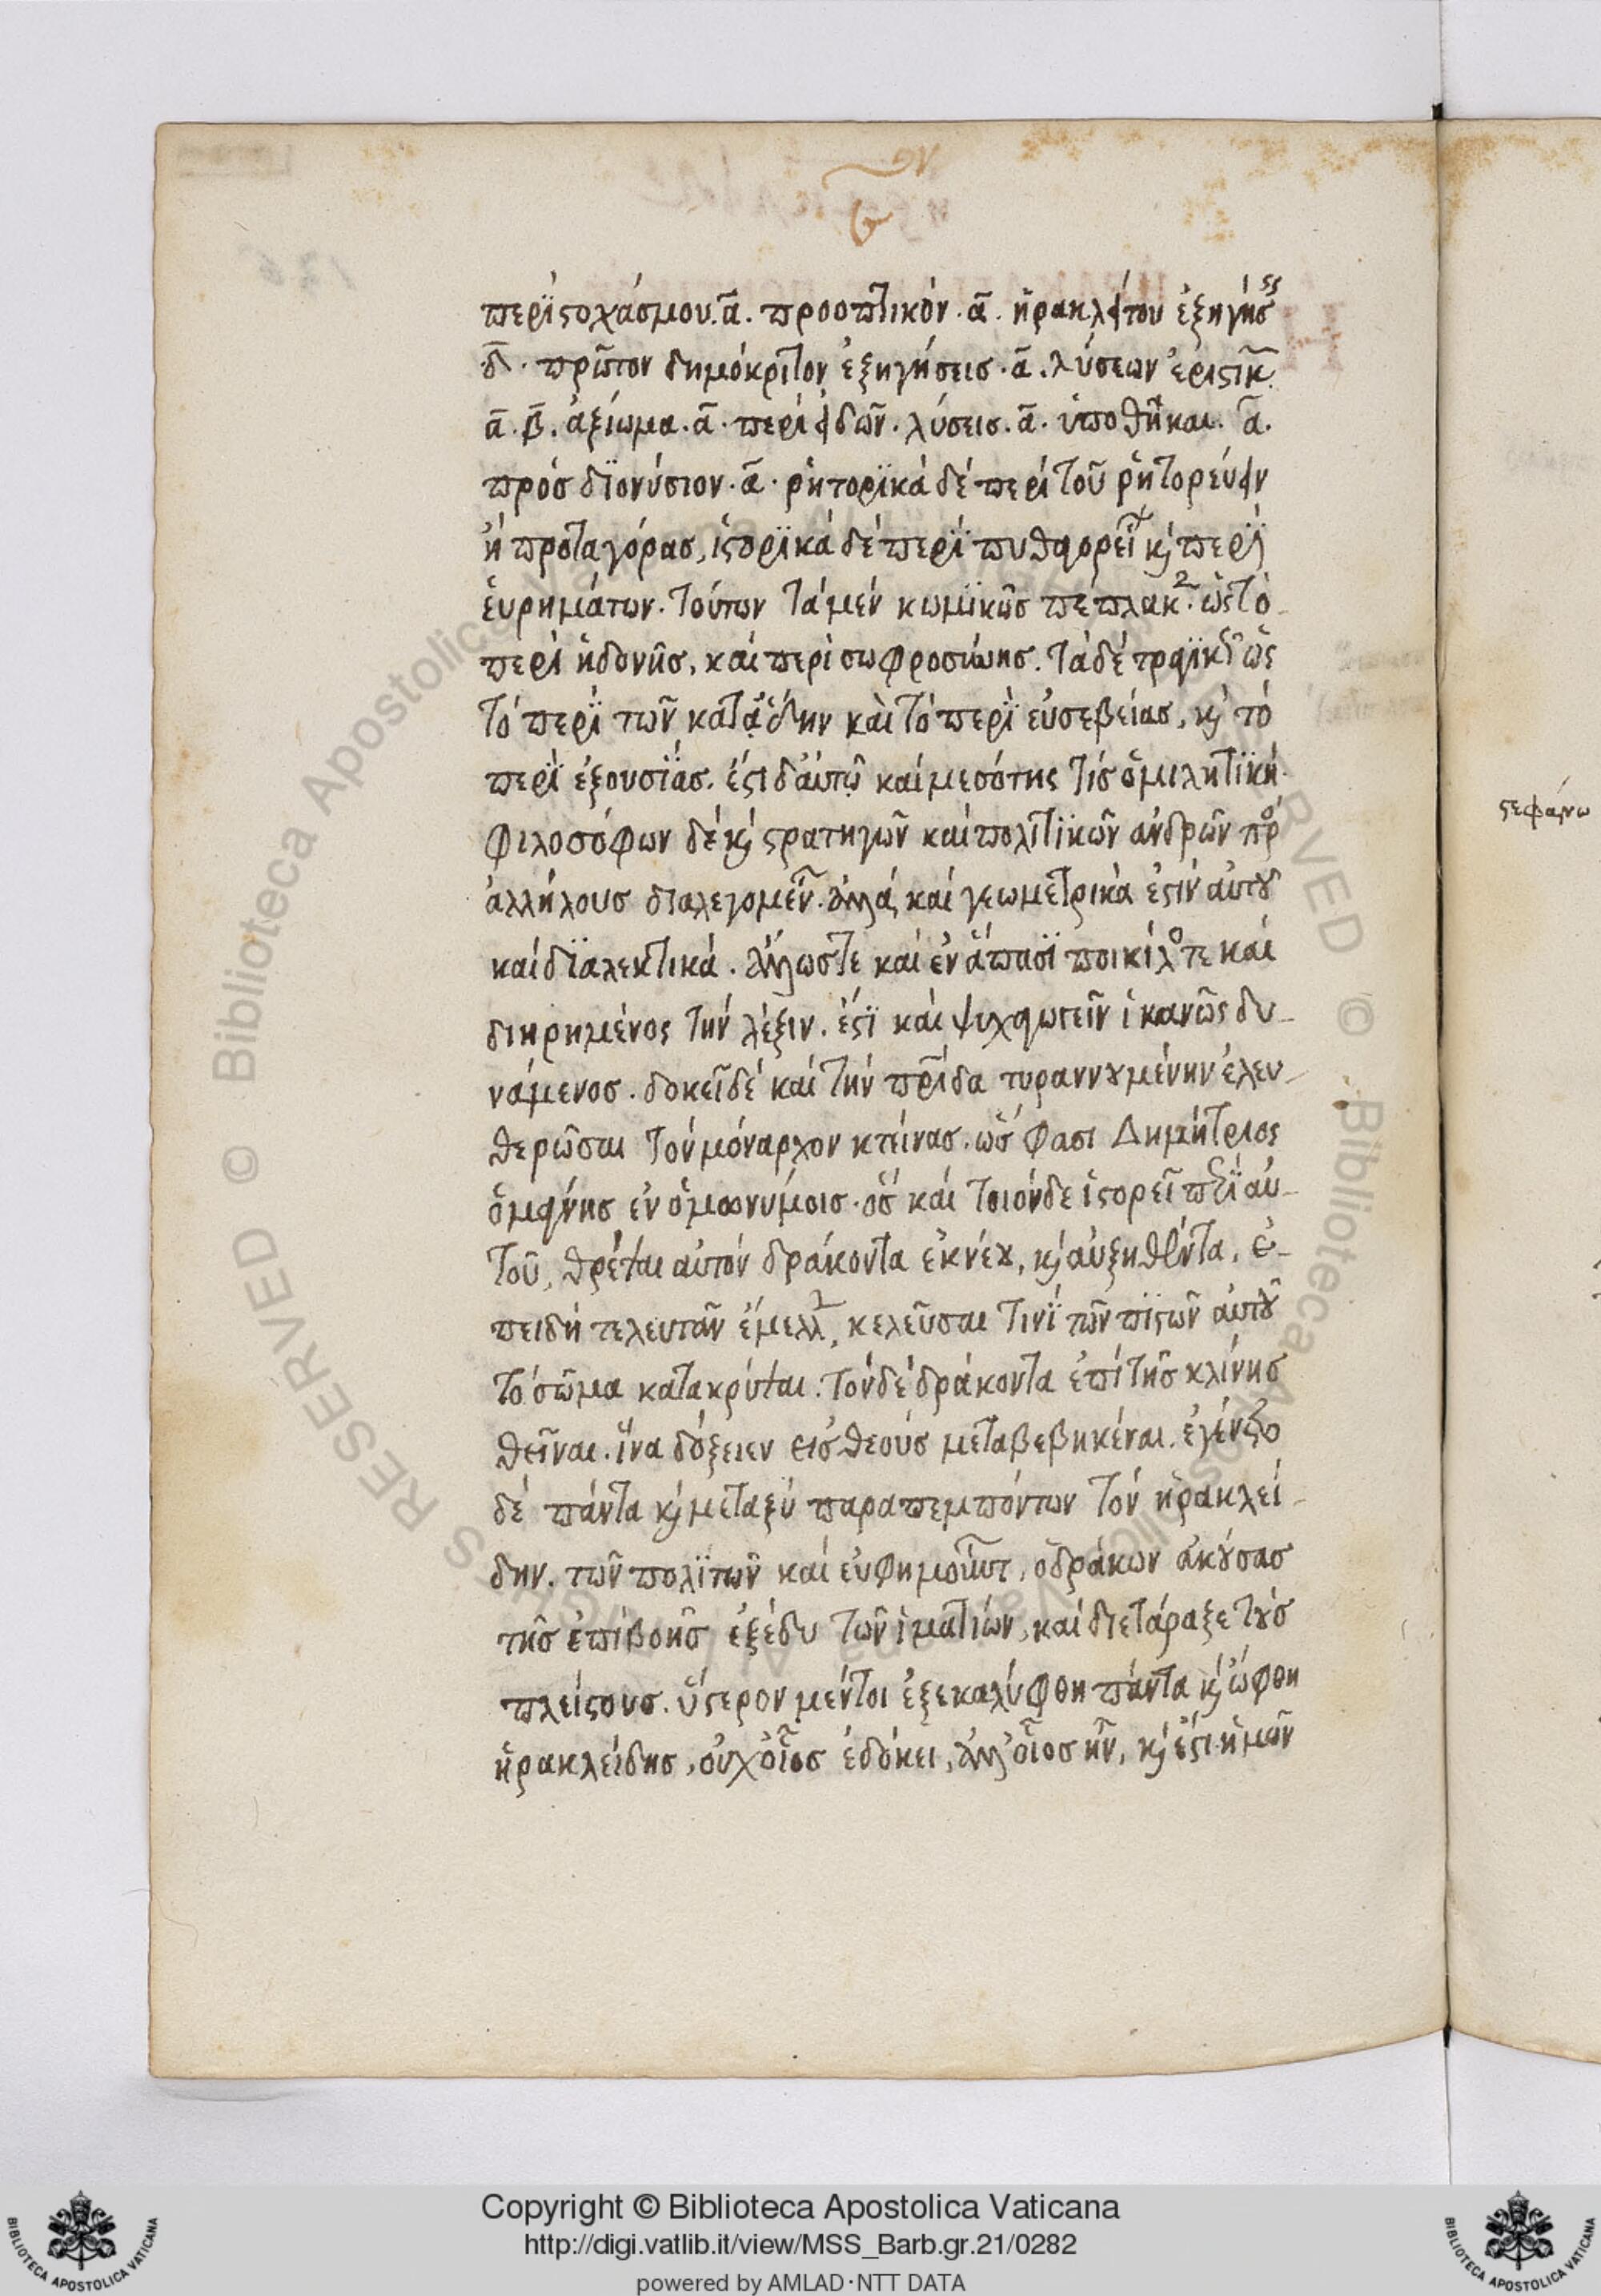 περὶ στοχασμοῦ. α̅. προοπτικόν. α̅. ἡρακλείτου ἐξηγήσεις
δ̅. πρῶτον δημόκριτον ἐξηγήσεις. α̅. λύσεων ἐριστικ
α̅. β̅. ἀξίωμα. α̅. περὶ εἰδῶν. λύσεις. α̅. ὑποθῆκαι. α̅.
πρόσ διονύσιον. α̅. ῥητορικά δέ περί τοῦ ῥητορεύειν
ἤ πρωταγόρασ, ἱστορικά δέ περί πυθαγορεί καί περί
εὑρημάτων. τούτων τά μέν κωμικῶσ πέπλακ. ὡς τό
περί ἡδονῆσ, καί περί σωφροσύνησ. τά δέ τραγικ ὡς
τό περί τῶν καταᾅδην καὶ τό περί εὐσεβείασ, καί τό
περί ἐξουσίασ. ἔστι δ' αὐτῷ καί μεσότης τίσ ὁμιλητική
φιλοσόφων δέ καί στρατηγῶν καί πολιτικῶν ἀνδρῶν πρ
ἀλλήλουσ διαλεγομέν. ἀλλά καί γεωμετρικά ἐστίν αὐτοῦ
καί διαλεκτικά. ἄλλωστε καί ἐν ἅπασι ποικίλος τε καί
διηρημένος τήν λέξιν. ἔστι καί ψυχαγωγεῖν ἱκανῶς δυ-
νάμενοσ. δοκεῖ δέ καί τήν πρίδα τυραννουμένην ἐλευ-
θερῶσαι τόν μόναρχον κτείνασ. ὥσ φασι Δημήτριος
ὁ μάγνησ ἐν ὁμωνύμοισ. ὅσ καί τοιόνδε ἱστορεῖ περί αὐ-
τοῦ, θρέψαι αὐτόν δράκοντα ἐκ νέου, καί αὐξηθέντα, ἐ-
πειδή τελευτᾶν ἔμελλ, κελεῦσαι τινί τῶν πιστῶν αὐτοῦ
τό σῶμα κατακρύψαι. τόν δέ δράκοντα ἐπί τῆσ κλίνησ
θεῖναι. ἵνα δόξειεν εἰσ θεούσ μεταβεβηκέναι. ἐγένετο
δέ πάντα καί μεταξύ παραπεμπόντων τόν ἡρακλεί-
δην. τῶν πολιτῶν καί εὐφημούντ, ὁ δράκων ἀκούσασ
τῆσ ἐπιβοῆσ ἐξέδυ τῶν ἱματίων, καί διετάραξε τούσ
πλείστουσ. ὕστερον μέντοι ἐξεκαλύφθη πάντα καί ὤφθη
ἡρακλείδησ, οὐχ οἷοσ ἐδόκει, ἀλλ' οἷοσ ἦν, καί ἔστι ἡμῶν
στεφάνω
Copyright © Biblioteca Apostolica Vaticana
http://digi.vatlib.it/view/MSS_Barb.gr.21/0282
powered by AMLAD·NTT DATA
BIBLIOTECA APOSTOLICA VATICANA
BIBLIOTECA APOSTOLICA VATICANA